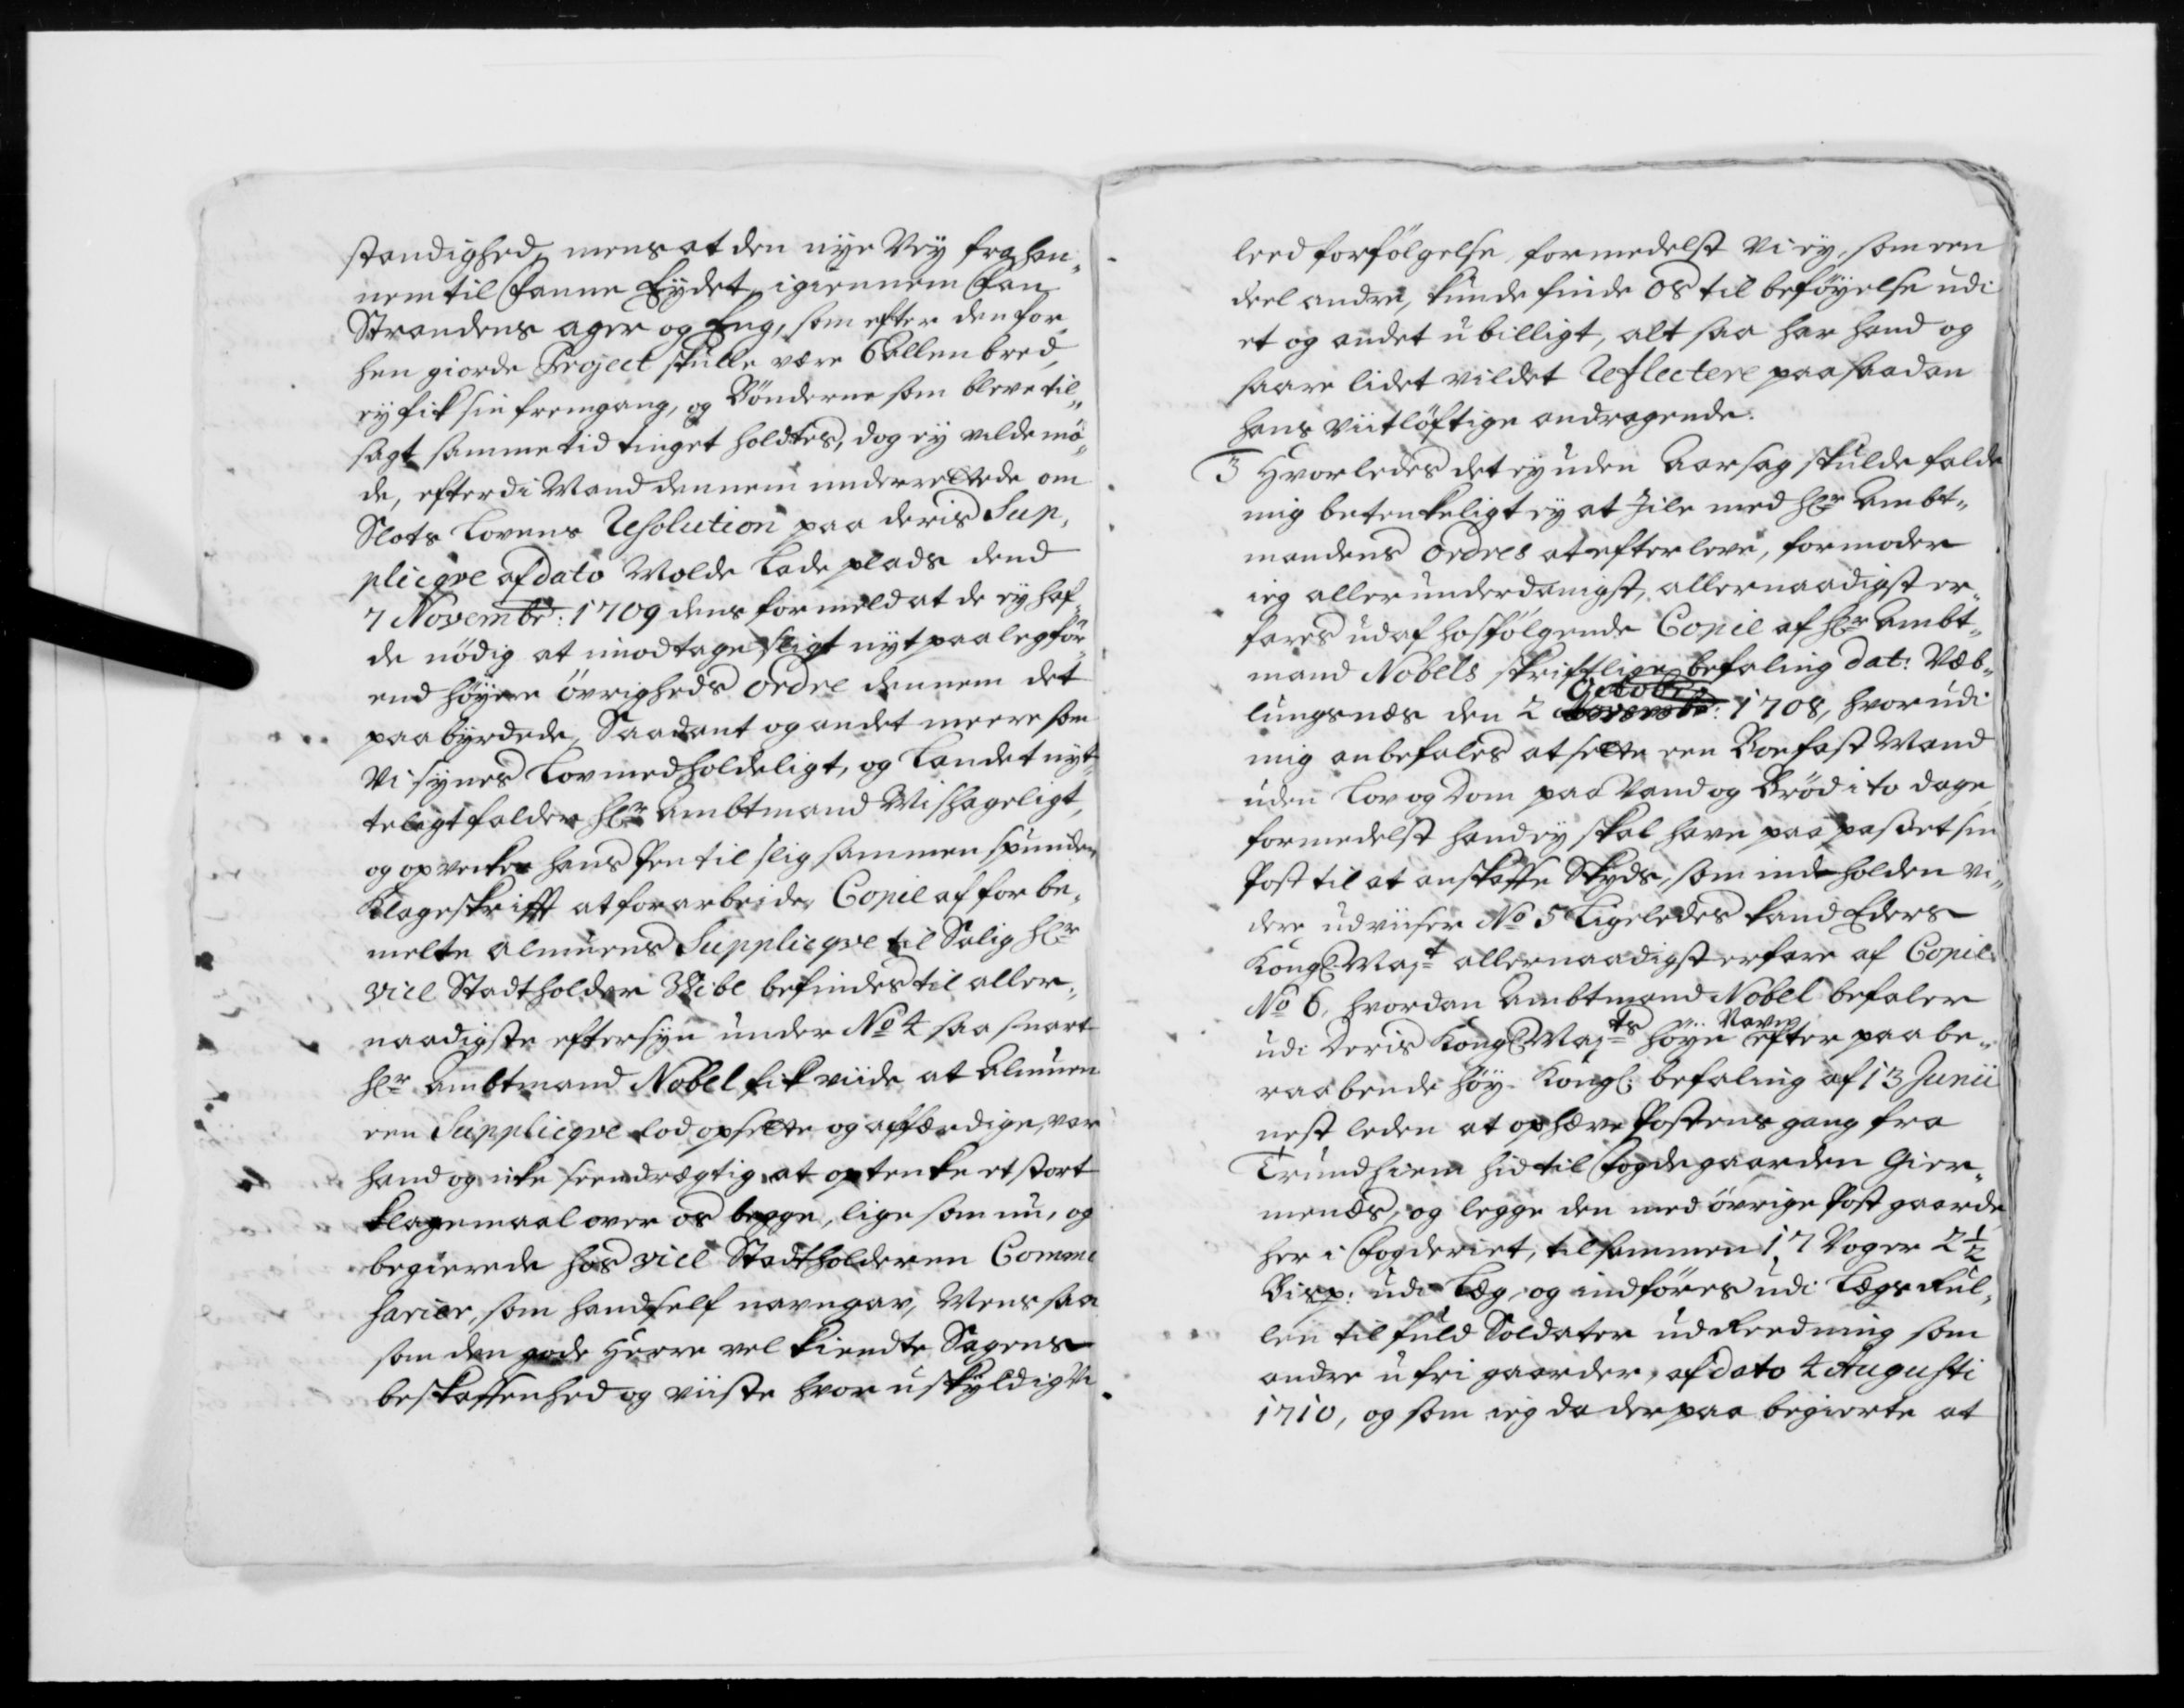 standighed, mens at den nye Vey fra han„
nem til Fanne Eydet, igiennem Fan
Strandens ager og Eng, som efter den for„
hen giorde Project skulle være 6 allen bred,
ey fik sin fremgang, og Bønderne som bleve til„
sagt samme tid tinget holdtes, dog ey vilde mö„
de, efterdi Mand dennem underrettede om
Slots Lovens Resolution paa deris Sup„
plicqve af dato Molde Lade plads dend
7 Novembr: 1709 dens formeld at de ey haf„
de nödig at imodtage sligt nyt paaleg för
end höyere övrigheds ordre dennem det
paabyrdede, Saadant og andet meere som
Vi synes Lovmedholdeligt, og Landet nyt„
teligt falder Hr Ambtmand Mishageligt,
og opvecker hans Pen til slig sammenspunden
Klageskrifft at forarbeide, Copie af for be„
melte almuens Supplicqve til Salig Hr
Vice Stadtholder Wibe befindes til aller„
naadigste eftersyn under No 4 saa snart
Hr Ambtmand Nobel fik viide at Almuen
een Supplicqve lod opsette og affærdige, var
hand og icke seendrægtig at optenke et stort
klagemaal over os begge, lige som nu, og
begierede hos Vice Stadtholderen Comme
harier, som hand self navngav, Mens saa
som den gode Herre vel kiendte Sagens
beskaffenhed og viiste hvor uskyldig Vi
leed forfölgelse, formedelst Vi ey, som een
deel andre, kunde finde Os til beföyelse udi
et og andet ubilligt, alt saa har hand og
saare lidet vildet Reflectere paa saadan
hans Viitlöftige andragende.
3 Hvorledes det ey uden Aarsag skulde falde
mig betenkeligt ey at Jile med Hr Ambt„
mandens Ordres at efterleve, formoder
ieg allerunderdanigst, allernaadigst er„
fares udaf hosfölgende Copie af Hr Ambt„
mand Nobels skriftlige befaling dat: Væb„
lungsnæs den 2 Octobr: 1708, hvorudi
mig anbefales at sette een Boefast Mand
uden Lov og Dom paa Vand og Bröd i to dage,
formedelst hand ey skal have paa passet sin
Post til at anskaffe Skyds, som indeholden vi„
dere udviiser No 5 Ligeledes kand Eders
Kongl: Majt allernaadigst erfare af Copie
No 6, hvordan Ambtmand Nobel befaler
udi Deris Kongl: Majts höye Navn efter paa be„
raabende höy Kongl: befaling af 13 Junii
nest leden at ophæve Postens gang fra
Trundhiem hid til Fogdegaarden Gier„
menæs, og legge den med övrige Post gaarde
her i Fogderiet, tilsammen 17 Voger 2 1/2
Bisp: udi Læg, og indföres udi Lægs Rul„
len til fuld Soldater udReedning som
andre ufri gaarder, af dato 4 Augusti
1710, og som ieg da derpaa begierte at